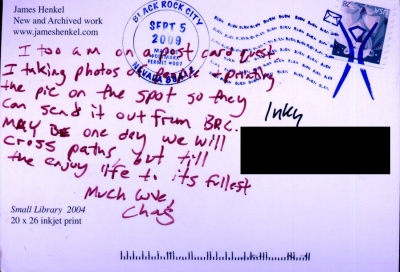 James Henkel
New and Archived work
www.jameshenkel.com
BLACK ROCK CITY
SEPT 5
2009
NEVADA
I too am on a post card quest
I taking photos of people + printing
the pic on the spot so they
can send it out from BRC.
MAY BE one day we will
cross paths but till
the enjoy life to its fullest
Much love,
Inky
Small Library 2004
20 x 26 inkjet print